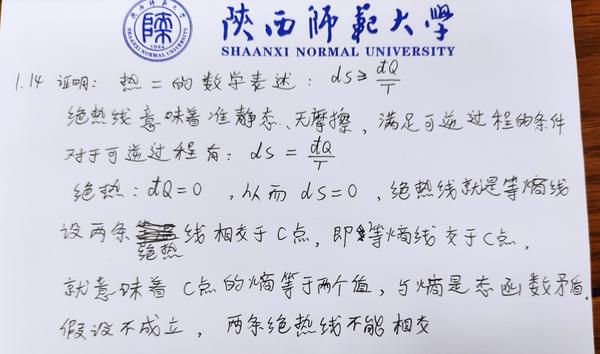 陕西师范大学
SHAANXI NORMAL UNIVERSITY
1944
1.14 证明: 热二的数学表述: dS ≥ đQ/T
绝热线意味着准静态、无摩擦, 满足可逆过程的条件
对于可逆过程有: dS = đQ/T
绝热: đQ=0 , 从而 dS=0 , 绝热线就是等熵线
设两条绝热线相交于C点, 即等熵线交于C点,
就意味着 C点的熵等于两个值, 与熵是态函数矛盾.
假设不成立, 两条绝热线不能相交